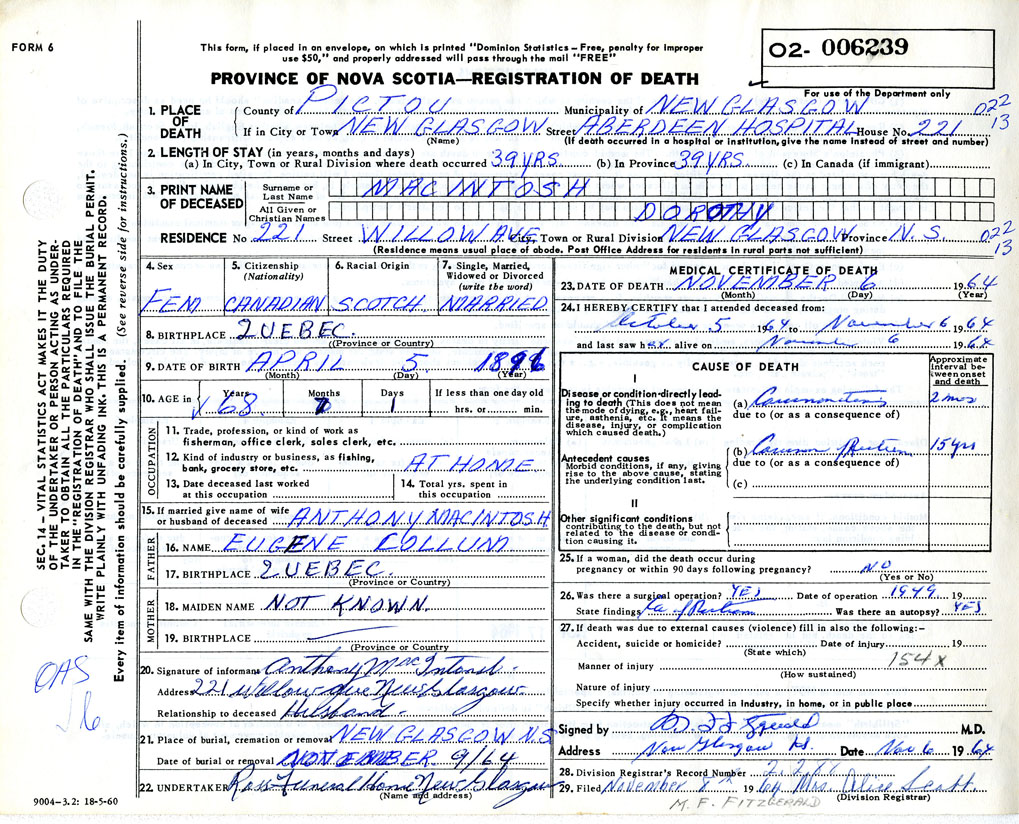 FORM 6
This form, if placed in an envelope, on which is printed "Dominion Statistics – Free, penalty for improper
use $50," and properly addressed will pass through the mail "FREE"
O2- 006239
For use of the Department only
PROVINCE OF NOVA SCOTIA—REGISTRATION OF DEATH
1. PLACE OF DEATH
County of PICTOU Municipality of NEW GLASGOW 022
If in City or Town NEW GLASGOW Street ABERDEEN HOSPITAL House No. 221 13
(Name) (If death occurred in a hospital or institution, give the name instead of street and number)
2. LENGTH OF STAY (in years, months and days)
(a) In City, Town or Rural Division where death occurred 39 YRS. (b) In Province 39 YRS. (c) In Canada (if immigrant)
3. PRINT NAME OF DECEASED
Surname or Last Name MACINTOSH
All Given or Christian Names DOROTHY
RESIDENCE No 221 Street WILLOW AVE City, Town or Rural Division NEW GLASGOW Province N.S. 022
(Residence means usual place of abode. Post Office Address for residents in rural parts not sufficient) 13
4. Sex FEM
5. Citizenship (Nationality) CANADIAN
6. Racial Origin SCOTCH
7. Single, Married, Widowed or Divorced (write the word) MARRIED
8. BIRTHPLACE QUEBEC.
(Province or Country)
9. DATE OF BIRTH APRIL 5. 1896
(Month) (Day) (Year)
10. AGE in Years 68. Months 7 Days 1 If less than one day old
hrs. or min.
OCCUPATION
11. Trade, profession, or kind of work as
fisherman, office clerk, sales clerk, etc.
12. Kind of industry or business, as fishing,
bank, grocery store, etc. AT HOME
13. Date deceased last worked
at this occupation
14. Total yrs. spent in
this occupation
15. If married give name of wife
or husband of deceased ANTHONY MACINTOSH
FATHER
16. NAME EUGENE COLLUM
17. BIRTHPLACE QUEBEC.
(Province or Country)
MOTHER
18. MAIDEN NAME NOT KNOWN.
19. BIRTHPLACE
(Province or Country)
20. Signature of informant Anthony MacIntosh
Address 221 Willow Ave New Glasgow
Relationship to deceased Husband
21. Place of burial, cremation or removal NEW GLASGOW N.S
Date of burial or removal NOVEMBER 9/64
22. UNDERTAKER Ross Funeral Home New Glasgow
(Name and address)
MEDICAL CERTIFICATE OF DEATH
23. DATE OF DEATH NOVEMBER 6 1964
(Month) (Day) (Year)
24. I HEREBY CERTIFY that I attended deceased from:
October 5 1964 to November 6 1964
and last saw her alive on November 6 1964
CAUSE OF DEATH
Approximate interval between onset and death
I
Disease or condition directly leading to death (This does not mean the mode of dying, e.g., heart failure, asthenia, etc. It means the disease, injury, or complication which caused death.)
(a) 2 mos
due to (or as a consequence of)
Antecedent causes
Morbid conditions, if any, giving rise to the above cause, stating the underlying condition last.
(b) 15 yrs
due to (or as a consequence of)
(c)
II
Other significant conditions contributing to the death, but not related to the disease or condition causing it.
25. If a woman, did the death occur during
pregnancy or within 90 days following pregnancy? NO
(Yes or No)
26. Was there a surgical operation? YES Date of operation 1949 19
State findings Was there an autopsy? YES
27. If death was due to external causes (violence) fill in also the following:–
Accident, suicide or homicide? Date of injury 19
(State which)
Manner of injury 154X
(How sustained)
Nature of injury
Specify whether injury occurred in industry, in home, or in public place
Signed by M.D.
Address New Glasgow Date Nov 6 1964
28. Division Registrar's Record Number
29. Filed November 8 1964 Mrs. Alice Scott.
(Division Registrar)
M. F. FITZGERALD
SEC. 14 – VITAL STATISTICS ACT MAKES IT THE DUTY
OF THE UNDERTAKER OR PERSON ACTING AS UNDER-
TAKER TO OBTAIN ALL THE PARTICULARS REQUIRED
IN THE "REGISTRATION OF DEATH" AND TO FILE THE
SAME WITH THE DIVISION REGISTRAR WHO SHALL ISSUE THE BURIAL PERMIT.
WRITE PLAINLY WITH UNFADING INK. THIS IS A PERMANENT RECORD.
Every item of information should be carefully supplied. (See reverse side for instructions.)
OAS
9004–3.2: 18-5-60